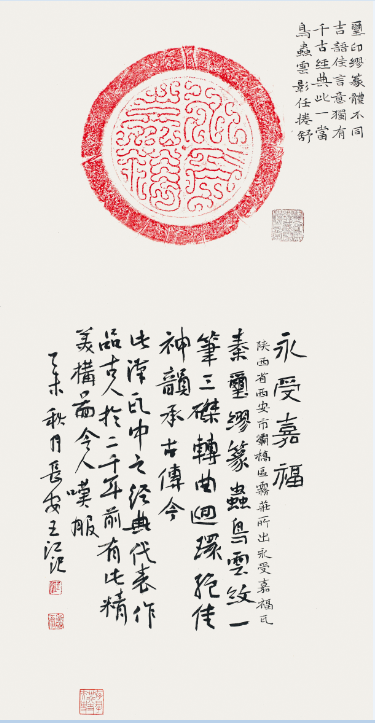 璽印繆篆體不同
吉語佳言意獨有
千古經典此一當
鳥蟲雲影任捲舒
永受嘉福
陝西省西安市灞橋區霧莊所出永受嘉福瓦
秦璽繆篆蟲鳥雲紋一
筆三磔轉曲迴環絕佳
神韻承古傳今
此漢瓦中之經典代表作
品古人於二千年前有此精
美構圖令人嘆服
乙未秋月長安王江記